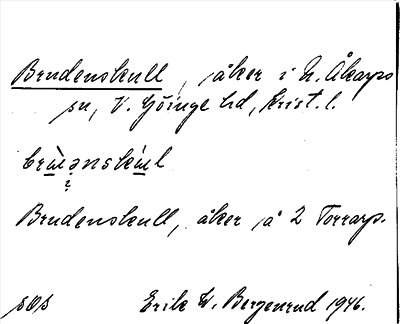 Brudenskull, åker i N. Åkarps
sn, V. Göinge hd, Krist. l.
brɯ̀ənskɯ́l
Brudenskull, åker på 2 Torrarp.
Erik W. Bergenrud 1946.